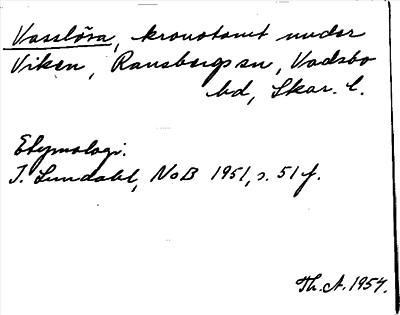 Vasslösa, kronotomt under
Viken, Ransbergs sn, Vadsbo
hd, Skar. l.
Etymologi:
I. Lundahl, NoB 1951, s. 51 f.
Th. A. 1954.